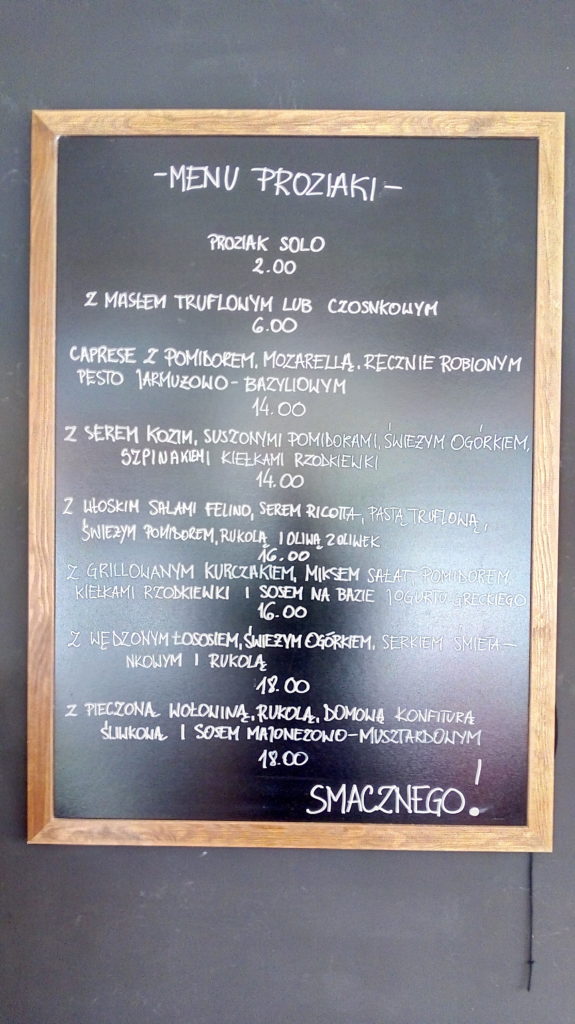 -MENU PROZIAKI-
PROZIAK SOLO
2.00
Z MASŁEM TRUFLOWYM LUB CZOSNKOWYM
6.00
CAPRESE Z POMIDOREM, MOZARELLĄ, RĘCZNIE ROBIONYM
PESTO JARMUŻOWO-BAZYLIOWYM
14.00
Z SEREM KOZIM, SUSZONYMI POMIDORAMI, ŚWIEŻYM OGÓRKIEM,
SZPINAKIEM I KIEŁKAMI RZODKIEWKI
14.00
Z WŁOSKIM SALAMI FELINO, SEREM RICOTTA, PASTĄ TRUFLOWĄ,
ŚWIEŻYM POMIDOREM, RUKOLĄ I OLIWĄ Z OLIWEK
16.00
Z GRILLOWANYM KURCZAKIEM, MIKSEM SAŁAT, POMIDOREM
KIEŁKAMI RZODKIEWKI I SOSEM NA BAZIE JOGURTU GRECKIEGO
16.00
Z WĘDZONYM ŁOSOSIEM, ŚWIEŻYM OGÓRKIEM, SERKIEM ŚMIETA-
NKOWYM I RUKOLĄ
18.00
Z PIECZONĄ WOŁOWINĄ, RUKOLĄ, DOMOWĄ KONFITURĄ
ŚLIWKOWĄ I SOSEM MAJONEZOWO-MUSZTARDOWYM
18.00
SMACZNEGO!